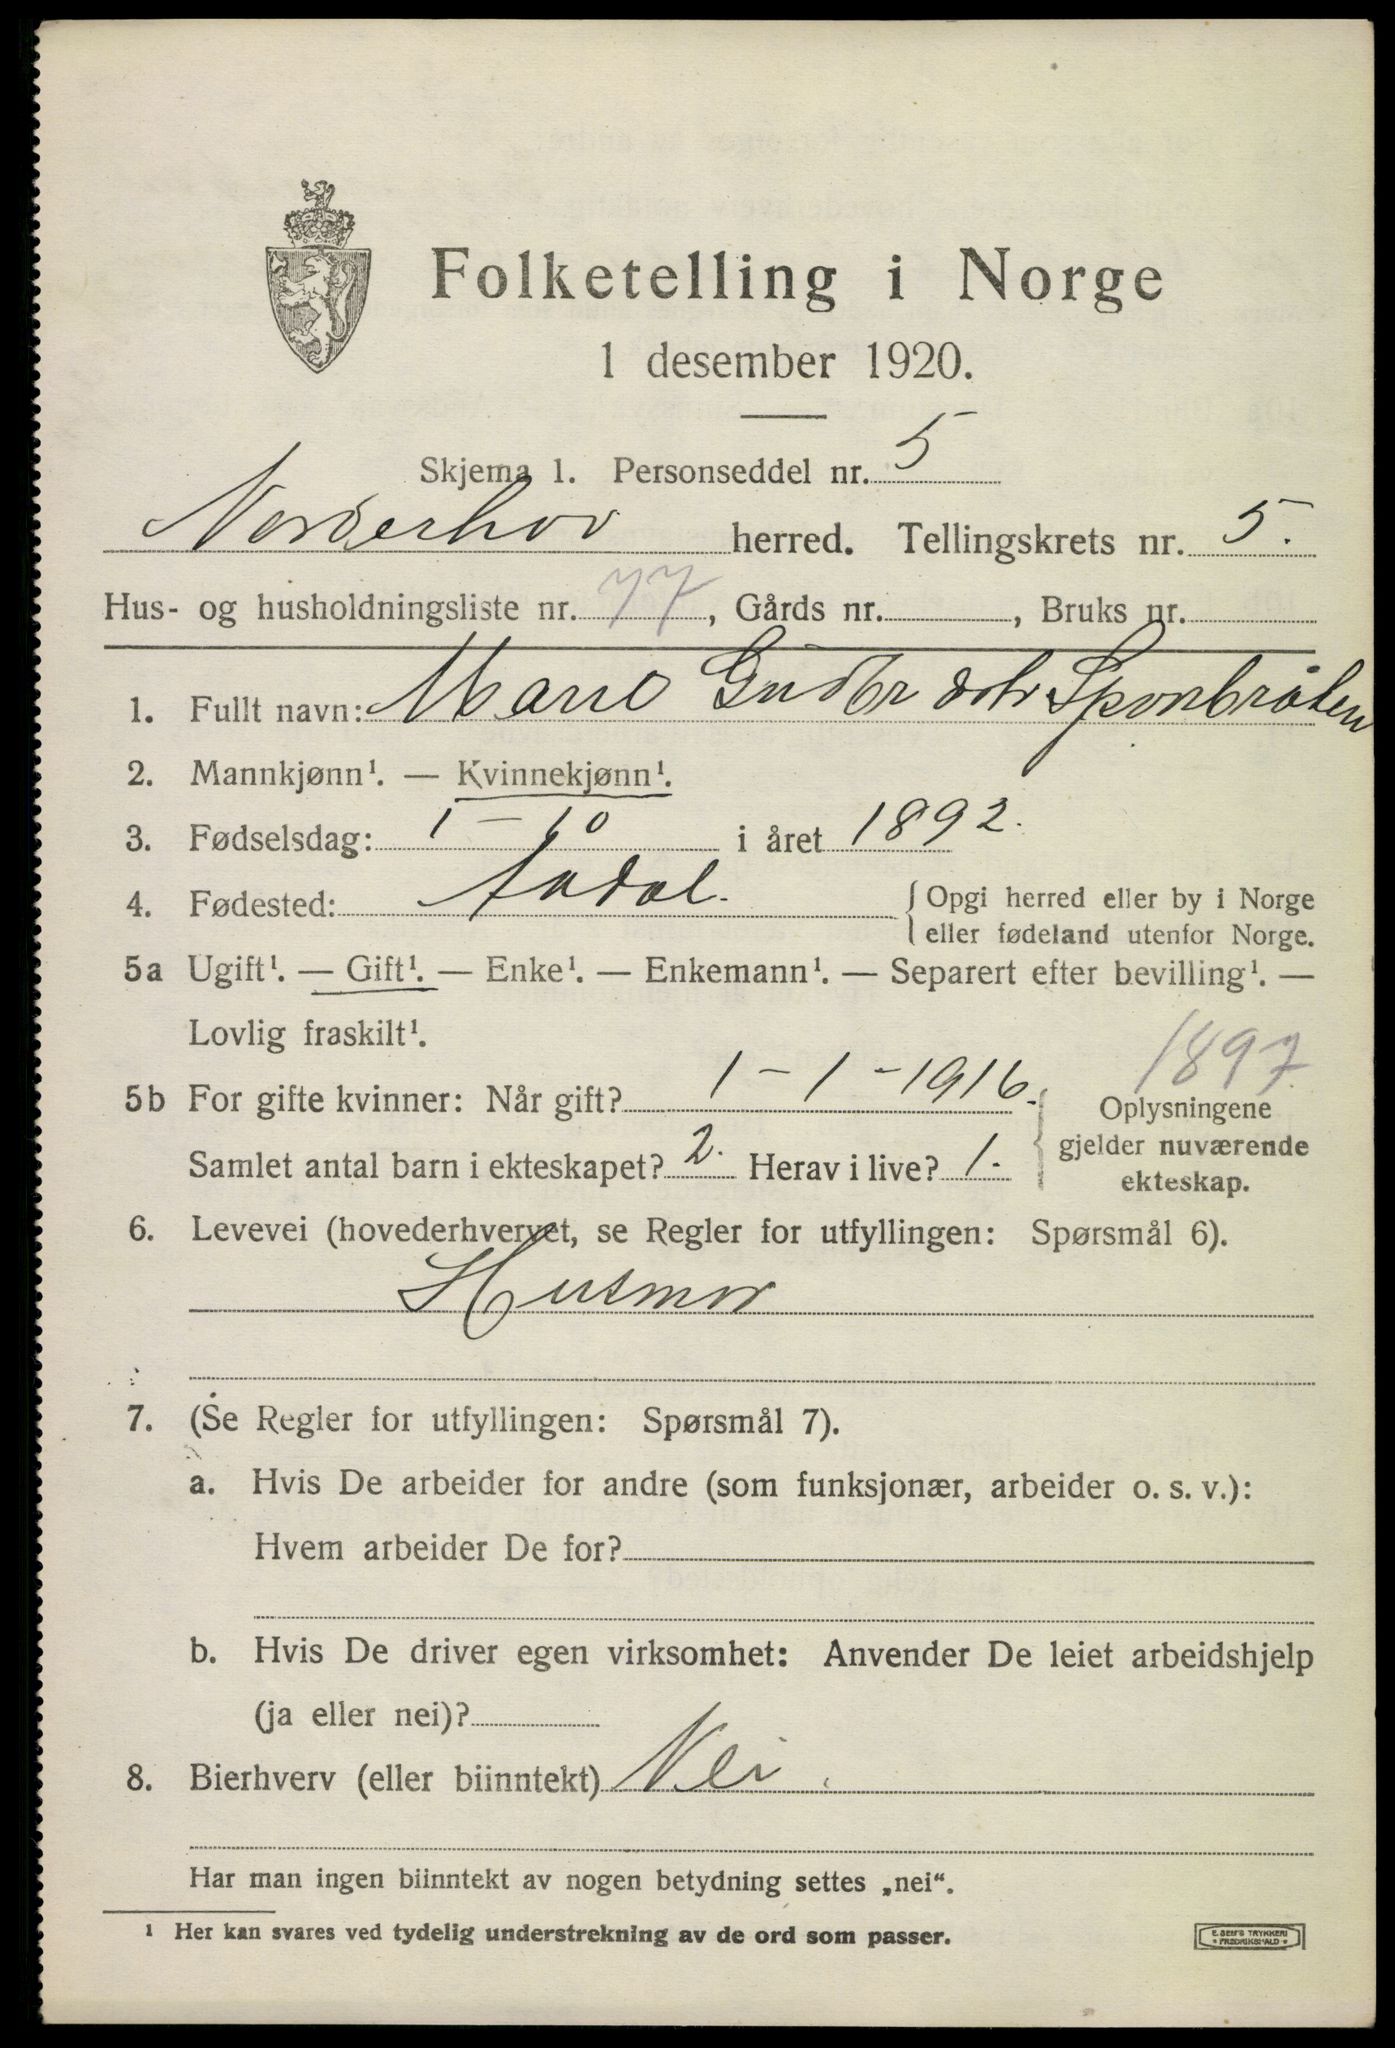 Folketelling i Norge
1 desember 1920.
Skjema 1. Personseddel nr. 5
Norderhov herred. Tellingskrets nr. 5.
Hus- og husholdningsliste nr. 77, Gårds nr. , Bruks nr.
1. Fullt navn: Marie Gudbr dotr Sponbråten
2. Mannkjønn¹. — Kvinnekjønn¹.
3. Fødselsdag: 1 – 10 i året 1892.
4. Fødested: Aadal. { Opgi herred eller by i Norge
eller fødeland utenfor Norge.
5a Ugift¹. — Gift¹. — Enke¹. — Enkemann¹. — Separert efter bevilling¹. —
Lovlig fraskilt¹.
1897
5b For gifte kvinner: Når gift? 1 – 1 – 1916. { Oplysningene
gjelder nuværende
ekteskap.
Samlet antal barn i ekteskapet? 2. Herav i live? 1.
6. Levevei (hovederhvervet, se Regler for utfyllingen: Spørsmål 6).
Husmor
7. (Se Regler for utfyllingen: Spørsmål 7).
a. Hvis De arbeider for andre (som funksjonær, arbeider o. s. v.):
Hvem arbeider De for?
b. Hvis De driver egen virksomhet: Anvender De leiet arbeidshjelp
(ja eller nei)?
8. Bierhverv (eller biinntekt) Nei.
Har man ingen biinntekt av nogen betydning settes „nei“.
¹ Her kan svares ved tydelig understrekning av de ord som passer.
E. SEM'S TRYKKERI
* FREDRIKSHALD *